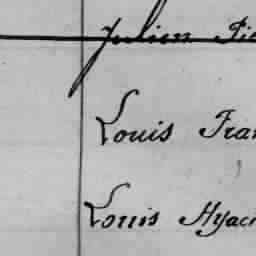 Julien Pie
Louis Fran
Louis Hyac